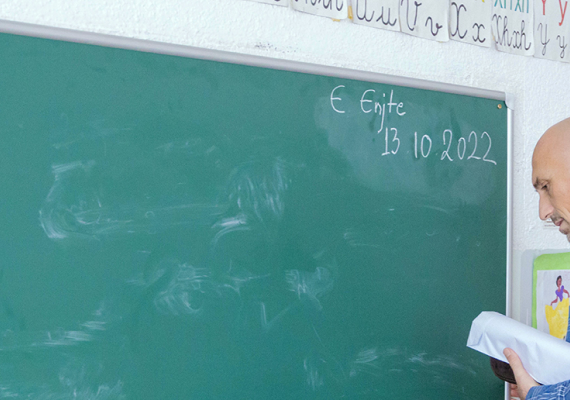 U u V v X x Xh xh Y y
E Enjte
13 10 2022